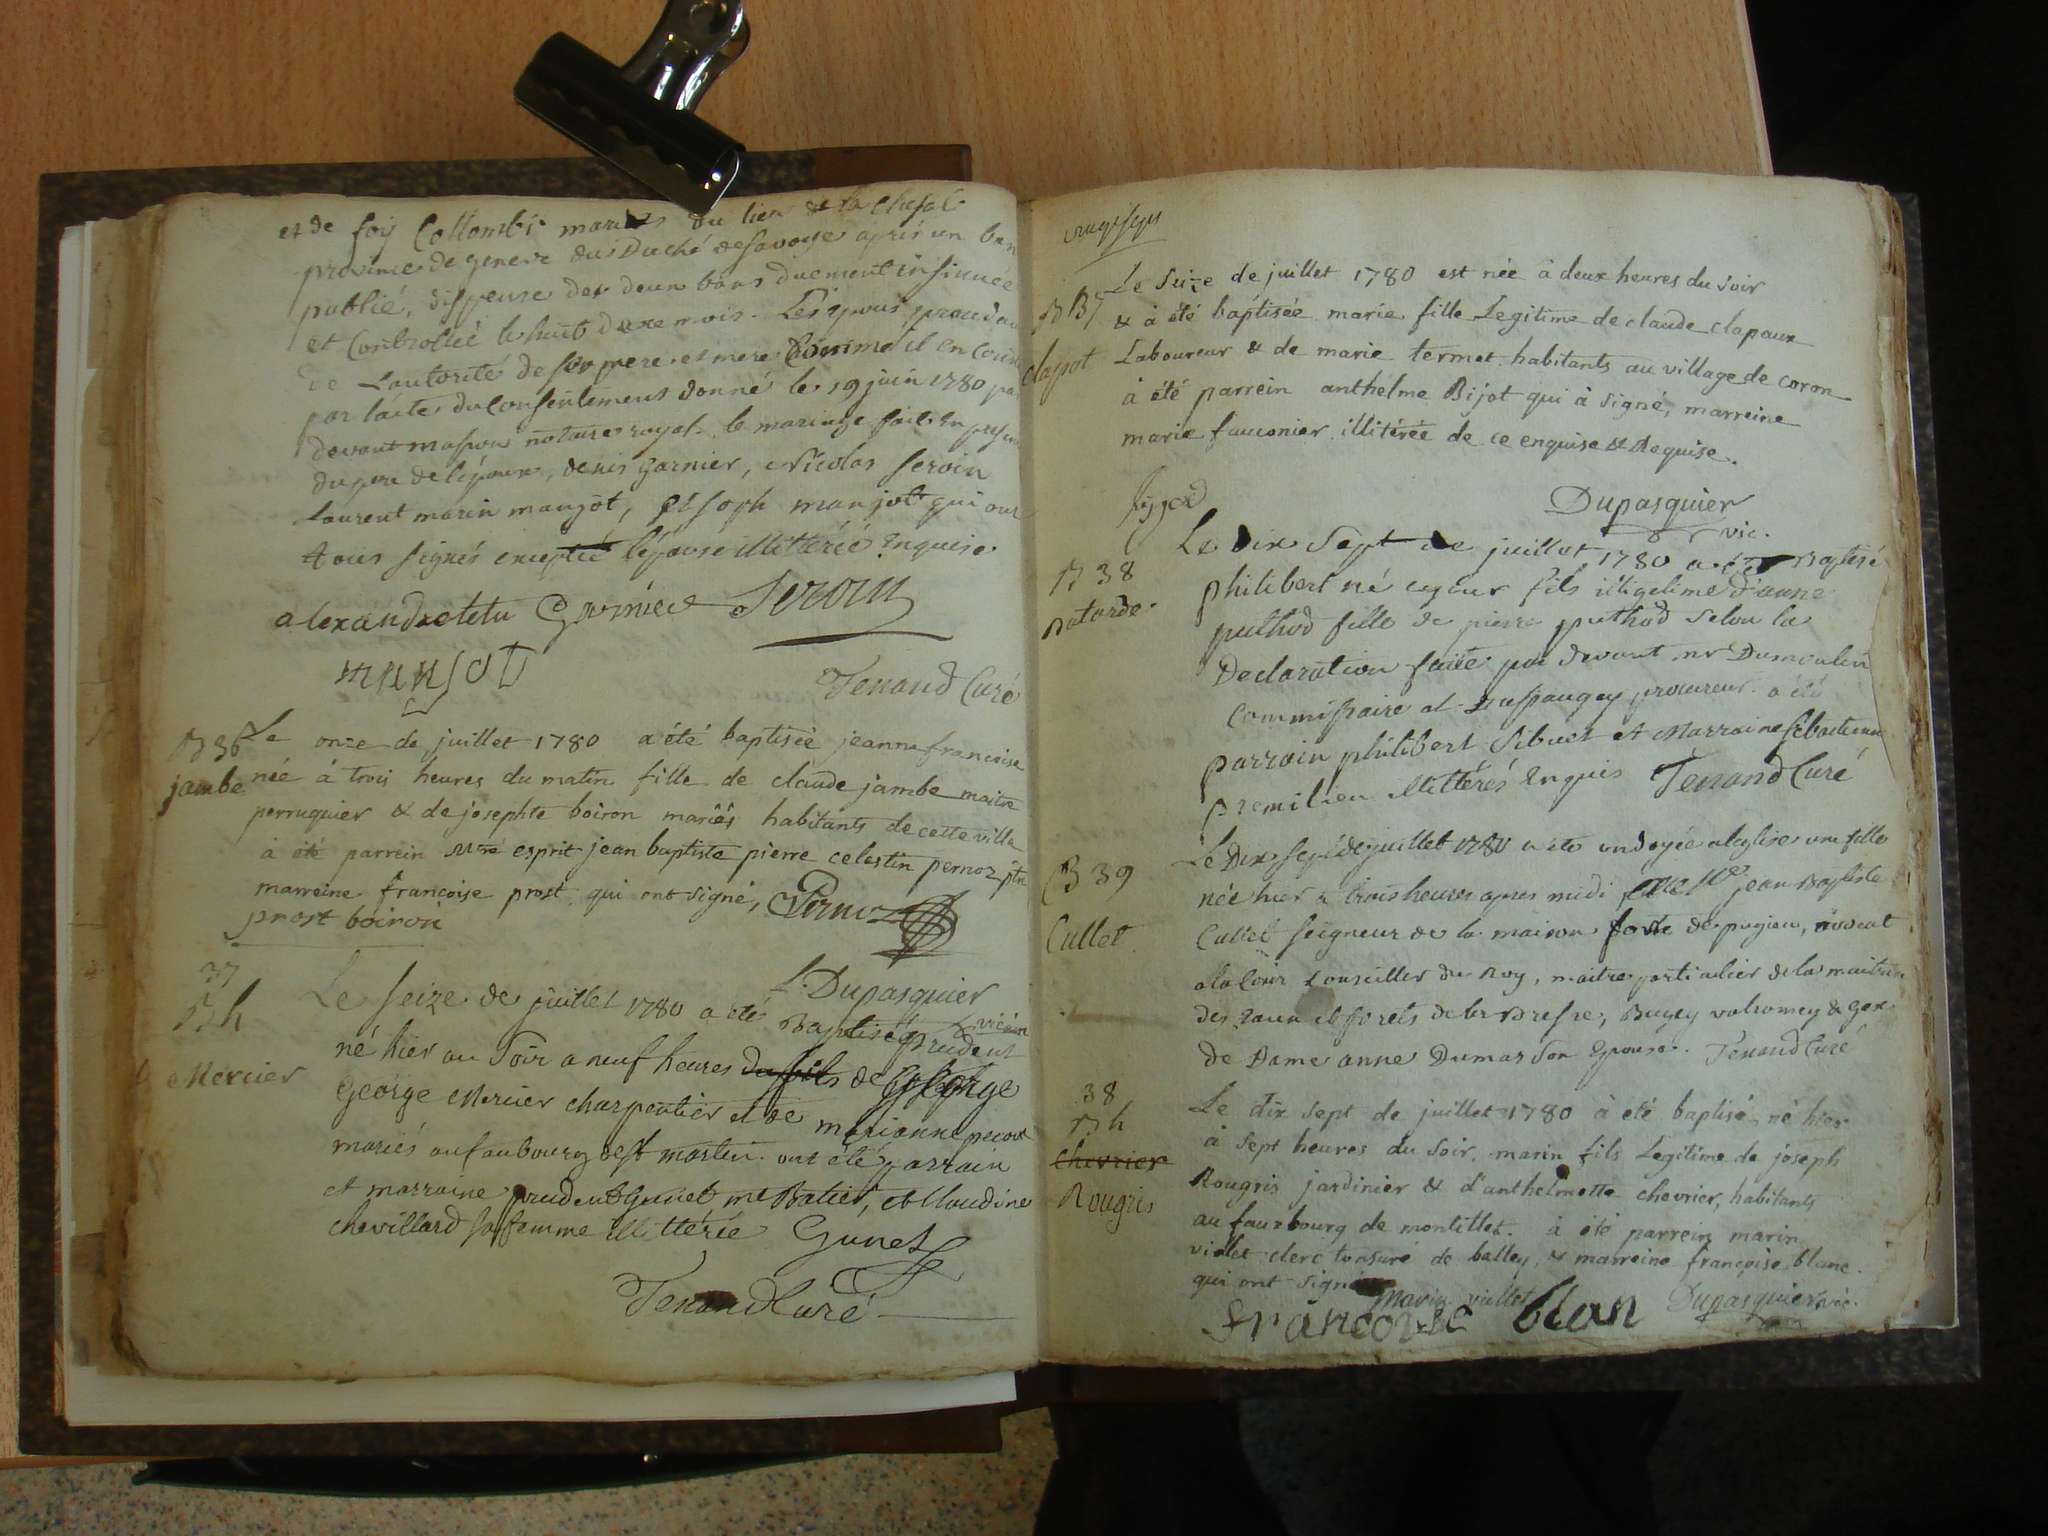 et de foy Collombi mariés du lieu de la
province de geneve du Duché de savoye après un ban
publié, dispense des deux bans duement insinuée
et Controllée le huit du mois. L'époux
de L'autorité de son pere et mere Comme il en
par l'acte du Consentement donné le 19 juin 1780
devant notaire royal. le mariage fait en
du pere de l'époux, denis garnier, Nicolas seroin
Laurent marin manjot, joseph manjot qui ont
tous signés excepté l'épouse illittérée Enquise
alexandre tetu Garnier Seroin
manjot
Tenand Curé
B 36
jambe
Le onze de juillet 1780 a été baptisée jeanne francoise
née à trois heures du matin fille de claude jambe maitre
perruquier & de josephte boiron mariés habitants de cette ville
à été parrein esprit jean baptiste pierre celestin pernoz
marreine francoise prost qui ont signé, Pernoz
prost boiron
Dupasquier vic
37
B h
Mercier
Le seize de juillet 1780 a été Baptisé prudent
né hier au soir a neuf heures du fils de George
George Mercier charpentier et de marianne
mariés au faubourg de st martin ont été parrain
et marraine prudent Gunet et Claudine
chevillard sa femme illittérée Gunet
Tenand Curé
B 37
clapot
Le seize de juillet 1780 est née à deux heures du soir
& à été baptisée marie fille Legitime de claude clapaux
Laboureur & de marie termet habitants au village de coron
à été parrein anthelme Bijot qui à signé, marreine
marie fauconier illitérée de ce enquise & Requise.
Dupasquier
vic.
B 38
Batarde
Le Dix Sept de juillet 1780 a été Baptisé
philibert né fils illigetime d'anne
puthod fille de pierre puthod selon la
Declaration faitte par devant mr Dumoulin
Commissaire et procureur a été
parrain philibert Sibuet et Marraine
premilieu illittérés Enquis Tenand Curé
B 39
Cullet
Le Dix sept de juillet 1780 a été ondoyée a l'eglise une fille
née hier a trois heures apres midi, de Mr jean Baptiste
Cullet seigneur de la maison forte de pugieu, avocat
a la Cour Conseiller du Roy, maitre particulier de la maitrise
des Eaux et forets de la Bresse, Bugey valromey & gex
de Dame anne Dumas son Epouse. Tenand Curé
38
B h
chevrier
Rougris
Le dix sept de juillet 1780 à été baptisé, né hier
à sept heures du soir, marin fils Legitime de joseph
Rougris jardinier & d'anthelmette chevrier, habitants
au fauxbourg de montillet. à été parrein marin
viollet clerc tonsuré de belley, & marreine francoise blanc
qui ont signé marin viollet Dupasquier vic.
francoise blan